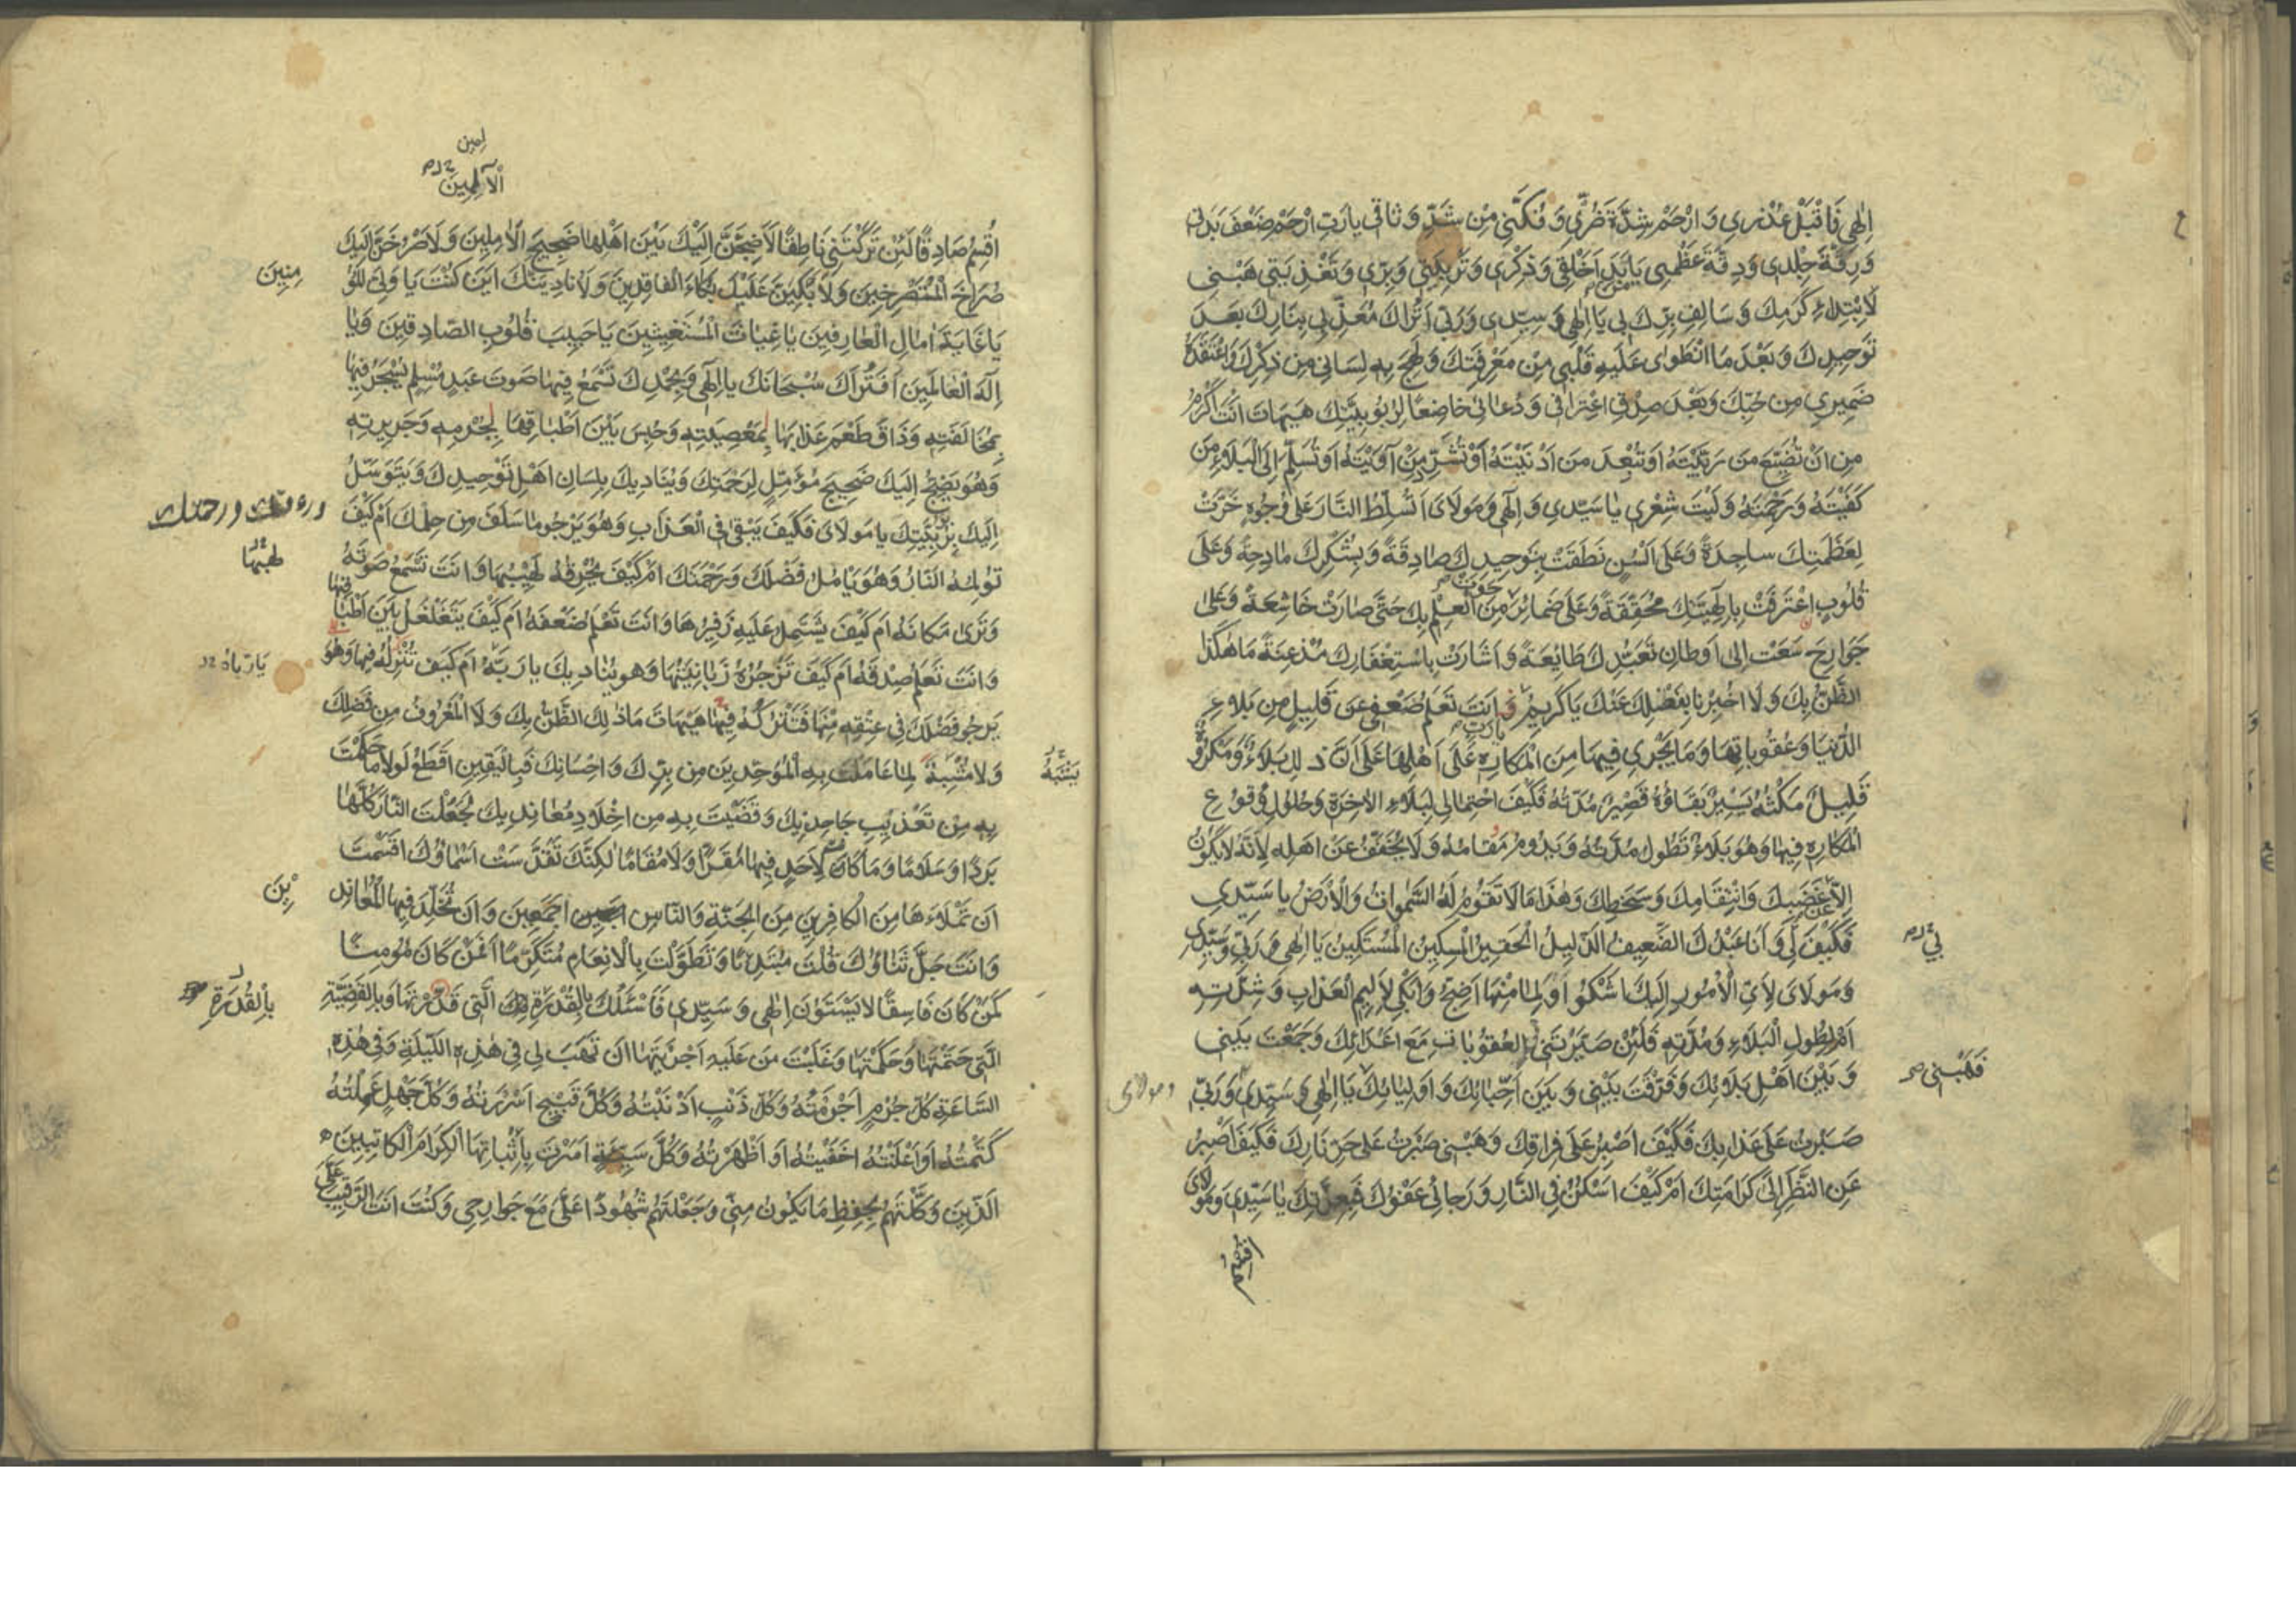 اِلٰهِي فَاقْبَلْ عُذْرِي وَارْحَمْ شِدَّةَ ضُرِّي وَفُكَّنِي مِنْ شَدِّ وَثَاقِي يَا رَبِّ ارْحَمْ ضَعْفَ بَدَنِي
وَرِقَّةَ جِلْدِي وَدِقَّةَ عَظْمِي يَا مَنْ بَدَءَ خَلْقِي وَذِكْرِي وَتَرْبِيَتِي وَبِرِّي وَتَغْذِيَتِي هَبْنِي
لِابْتِدَاءِ كَرَمِكَ وَسَالِفِ بِرِّكَ بِي يَا اِلٰهِي وَسَيِّدِي وَرَبِّي اَتُرَاكَ مُعَذِّبِي بِنَارِكَ بَعْدَ
تَوْحِيدِكَ وَبَعْدَ مَا انْطَوٰى عَلَيْهِ قَلْبِي مِنْ مَعْرِفَتِكَ وَلَهِجَ بِهِ لِسَانِي مِنْ ذِكْرِكَ وَاعْتَقَدَهُ
ضَمِيرِي مِنْ حُبِّكَ وَبَعْدَ صِدْقِ اعْتِرَافِي وَدُعَائِي خَاضِعًا لِرُبُوبِيَّتِكَ هَيْهَاتَ اَنْتَ اَكْرَمُ
مِنْ اَنْ تُضَيِّعَ مَنْ رَبَّيْتَهُ اَوْ تُبَعِّدَ مَنْ اَدْنَيْتَهُ اَوْ تُشَرِّدَ مَنْ آوَيْتَهُ اَوْ تُسَلِّمَ اِلَى الْبَلَاءِ مَنْ
كَفَيْتَهُ وَرَحِمْتَهُ وَلَيْتَ شِعْرِي يَا سَيِّدِي وَاِلٰهِي وَمَوْلَايَ اَتُسَلِّطُ النَّارَ عَلَى وُجُوهٍ خَرَّتْ
لِعَظَمَتِكَ سَاجِدَةً وَعَلَى اَلْسُنٍ نَطَقَتْ بِتَوْحِيدِكَ صَادِقَةً وَبِشُكْرِكَ مَادِحَةً وَعَلَى
قُلُوبٍ اعْتَرَفَتْ بِاِلٰهِيَّتِكَ مُحَقِّقَةً وَعَلَى ضَمَائِرَ حَوَتْ مِنَ الْعِلْمِ بِكَ حَتَّى صَارَتْ خَاشِعَةً وَعَلَى
جَوَارِحَ سَعَتْ اِلَى اَوْطَانِ تَعَبُّدِكَ طَائِعَةً وَاَشَارَتْ بِاسْتِغْفَارِكَ مُذْعِنَةً مَا هٰكَذَا
الظَّنُّ بِكَ وَلَا اُخْبِرْنَا بِفَضْلِكَ عَنْكَ يَا كَرِيمُ يَا رَبِّ وَاَنْتَ تَعْلَمُ ضَعْفِي عَنْ قَلِيلٍ مِنْ بَلَاءِ
الدُّنْيَا وَعُقُوبَاتِهَا وَمَا يَجْرِي فِيهَا مِنَ الْمَكَارِهِ عَلَى اَهْلِهَا عَلَى اَنَّ ذٰلِكَ بَلَاءٌ وَمَكْرُوهٌ
قَلِيلٌ مَكْثُهُ يَسِيرٌ بَقَاؤُهُ قَصِيرٌ مُدَّتُهُ فَكَيْفَ احْتِمَالِي لِبَلَاءِ الْاٰخِرَةِ وَحُلُولِ وُقُوعِ
الْمَكَارِهِ فِيهَا وَهُوَ بَلَاءٌ تَطُولُ مُدَّتُهُ وَيَدُومُ مَقَامُهُ وَلَا يُخَفَّفُ عَنْ اَهْلِهِ لِاَنَّهُ لَا يَكُونُ
اِلَّا عَنْ غَضَبِكَ وَانْتِقَامِكَ وَسَخَطِكَ وَهٰذَا مَا لَا تَقُومُ لَهُ السَّمٰوَاتُ وَالْاَرْضُ يَا سَيِّدِي
فَكَيْفَ لِي وَاَنَا عَبْدُكَ الضَّعِيفُ الذَّلِيلُ الْحَقِيرُ الْمِسْكِينُ الْمُسْتَكِينُ يَا اِلٰهِي وَرَبِّي وَسَيِّدِي
بِي
وَمَوْلَايَ لِاَيِّ الْاُمُورِ اِلَيْكَ اَشْكُوا وَلِمَا مِنْهَا اَضِجُّ وَاَبْكِي لِاَلِيمِ الْعَذَابِ وَشِدَّتِهِ
اَمْ لِطُولِ الْبَلَاءِ وَمُدَّتِهِ فَلَئِنْ صَيَّرْتَنِي لِلْعُقُوبَاتِ مَعَ اَعْدَائِكَ وَجَمَعْتَ بَيْنِي
وَبَيْنَ اَهْلِ بَلَائِكَ وَفَرَّقْتَ بَيْنِي وَبَيْنَ اَحِبَّائِكَ وَاَوْلِيَائِكَ يَا اِلٰهِي وَسَيِّدِي وَرَبِّي
فَهَبْنِي
ومولای
صَبَرْتُ عَلَى عَذَابِكَ فَكَيْفَ اَصْبِرُ عَلَى فِرَاقِكَ وَهَبْنِي صَبَرْتُ عَلَى حَرِّ نَارِكَ فَكَيْفَ اَصْبِرُ
عَنِ النَّظَرِ اِلَى كَرَامَتِكَ اَمْ كَيْفَ اَسْكُنُ فِي النَّارِ وَرَجَائِي عَفْوُكَ فَبِعِزَّتِكَ يَا سَيِّدِي وَمَوْلَايَ
اقسم
لمین
الْآلِمِينَ
اُقْسِمُ صَادِقًا لَئِنْ تَرَكْتَنِي نَاطِقًا لَاَضِجَّنَّ اِلَيْكَ بَيْنَ اَهْلِهَا ضَجِيجَ الْاٰمِلِينَ وَلَاَصْرُخَنَّ اِلَيْكَ
صُرَاخَ الْمُسْتَصْرِخِينَ وَلَاَبْكِيَنَّ عَلَيْكَ بُكَاءَ الْفَاقِدِينَ وَلَاُنَادِيَنَّكَ اَيْنَ كُنْتَ يَا وَلِيَّ الْمُؤْ
مِنِينَ
يَا غَايَةَ اٰمَالِ الْعَارِفِينَ يَا غِيَاثَ الْمُسْتَغِيثِينَ يَا حَبِيبَ قُلُوبِ الصَّادِقِينَ وَيَا
اِلٰهَ الْعَالَمِينَ اَفَتُرَاكَ سُبْحَانَكَ يَا اِلٰهِي وَبِحَمْدِكَ تَسْمَعُ فِيهَا صَوْتَ عَبْدٍ مُسْلِمٍ يُسْجَنُ فِيهَا
بِمُخَالَفَتِهِ وَذَاقَ طَعْمَ عَذَابِهَا بِمَعْصِيَتِهِ وَحُبِسَ بَيْنَ اَطْبَاقِهَا بِجُرْمِهِ وَجَرِيرَتِهِ
وَهُوَ يَضِجُّ اِلَيْكَ ضَجِيجَ مُؤَمِّلٍ لِرَحْمَتِكَ وَيُنَادِيكَ بِلِسَانِ اَهْلِ تَوْحِيدِكَ وَيَتَوَسَّلُ
اِلَيْكَ بِرُبُوبِيَّتِكَ يَا مَوْلَايَ فَكَيْفَ يَبْقٰى فِي الْعَذَابِ وَهُوَ يَرْجُو مَا سَلَفَ مِنْ حِلْمِكَ اَمْ كَيْفَ
ورءفتك ورحمتك
تُؤْلِمُهُ النَّارُ وَهُوَ يَأْمُلُ فَضْلَكَ وَرَحْمَتَكَ اَمْ كَيْفَ يُحْرِقُهُ لَهِيبُهَا وَاَنْتَ تَسْمَعُ صَوْتَهُ
لهبها
وَتَرٰى مَكَانَهُ اَمْ كَيْفَ يَشْتَمِلُ عَلَيْهِ زَفِيرُهَا وَاَنْتَ تَعْلَمُ ضَعْفَهُ اَمْ كَيْفَ يَتَغَلْغَلُ بَيْنَ اَطْبَاقِهَا
وَاَنْتَ تَعْلَمُ صِدْقَهُ اَمْ كَيْفَ تَزْجُرُهُ زَبَانِيَتُهَا وَهُوَ يُنَادِيكَ يَا رَبَّهُ اَمْ كَيْفَ تُنْزِلُهُ فِيهَا وَهُوَ
يَارَبّاهُ
يَرْجُو فَضْلَكَ فِي عِتْقِهِ مِنْهَا فَتَتْرُكَهُ فِيهَا هَيْهَاتَ مَا ذٰلِكَ الظَّنُّ بِكَ وَلَا الْمَعْرُوفُ مِنْ فَضْلِكَ
وَلَا مُشْبِهٌ لِمَا عَامَلْتَ بِهِ الْمُوَحِّدِينَ مِنْ بِرِّكَ وَاِحْسَانِكَ فَبِالْيَقِينِ اَقْطَعُ لَوْلَا مَا حَكَمْتَ
يَشْبَهُ
بِهِ مِنْ تَعْذِيبِ جَاحِدِيكَ وَقَضَيْتَ بِهِ مِنْ اِخْلَادِ مُعَانِدِيكَ لَجَعَلْتَ النَّارَ كُلَّهَا
بَرْدًا وَسَلَامًا وَمَا كَانَ لِاَحَدٍ فِيهَا مَقَرًّا وَلَا مُقَامًا لٰكِنَّكَ تَقَدَّسَتْ اَسْمَاؤُكَ اَقْسَمْتَ
اَنْ تَمْلَأَهَا مِنَ الْكَافِرِينَ مِنَ الْجِنَّةِ وَالنَّاسِ اَجْمَعِينَ وَاَنْ تُخَلِّدَ فِيهَا الْمُعَانِدِ
ينَ
وَاَنْتَ جَلَّ ثَنَاؤُكَ قُلْتَ مُبْتَدِئًا وَتَطَوَّلْتَ بِالْاِنْعَامِ مُتَكَرِّمًا اَفَمَنْ كَانَ مُؤْمِنًا
كَمَنْ كَانَ فَاسِقًا لَا يَسْتَوُنَ اِلٰهِي وَسَيِّدِي فَاَسْئَلُكَ بِالْقُدْرَةِ الَّتِي قَدَّرْتَهَا وَبِالْقَضِيَّةِ
بِالْقُدْرَةِ
الَّتِي حَتَمْتَهَا وَحَكَمْتَهَا وَغَلَبْتَ مَنْ عَلَيْهِ اَجْرَيْتَهَا اَنْ تَهَبَ لِي فِي هٰذِهِ اللَّيْلَةِ وَفِي هٰذِهِ
السَّاعَةِ كُلَّ جُرْمٍ اَجْرَمْتُهُ وَكُلَّ ذَنْبٍ اَذْنَبْتُهُ وَكُلَّ قَبِيحٍ اَسْرَرْتُهُ وَكُلَّ جَهْلٍ عَمِلْتُهُ
كَتَمْتُهُ اَوْ اَعْلَنْتُهُ اَخْفَيْتُهُ اَوْ اَظْهَرْتُهُ وَكُلَّ سَيِّئَةٍ اَمَرْتَ بِاِثْبَاتِهَا الْكِرَامَ الْكَاتِبِينَ
الَّذِينَ وَكَّلْتَهُمْ بِحِفْظِ مَا يَكُونُ مِنِّي وَجَعَلْتَهُمْ شُهُودًا عَلَيَّ مَعَ جَوَارِحِي وَكُنْتَ اَنْتَ الرَّقِيبَ عَلَيَّ